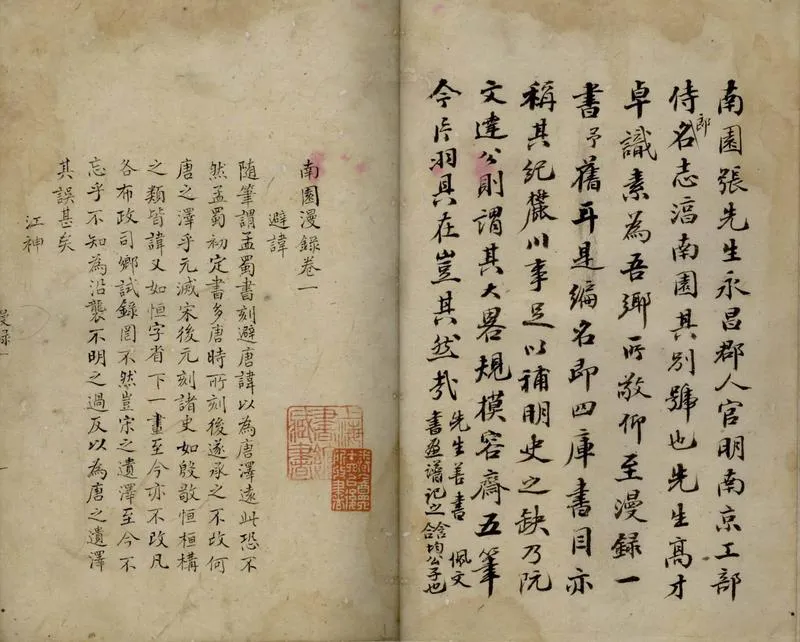 南園張先生永昌郡人官明南京工部
侍郎名志淳南園其別號也先生髙才
卓識素為吾鄉所敬仰至漫録一
書予舊耳是編名即四庫書目亦
稱其紀麓川事足以補明史之缺乃阮
文達公則謂其大畧規模容齋五筆
今片羽具在豈其然哉
先生善書 佩文
書畫譜記之 含均公子也
上海圖書館藏書
南園漫録卷一
避諱
隨筆謂孟蜀書刻避唐諱以為唐澤遠此恐不
然孟蜀初定書多唐時所刻後遂承之不改何
唐之澤乎元滅宋後元刻諸史如殷敬恒桓構
之類皆諱又如恒字省下一畫至今亦不改凡
各布政司鄉試錄罔不然豈宋之遺澤至今不
忘乎不知為沿襲不明之過反以為唐之遺澤
其誤甚矣
江神
漫録一